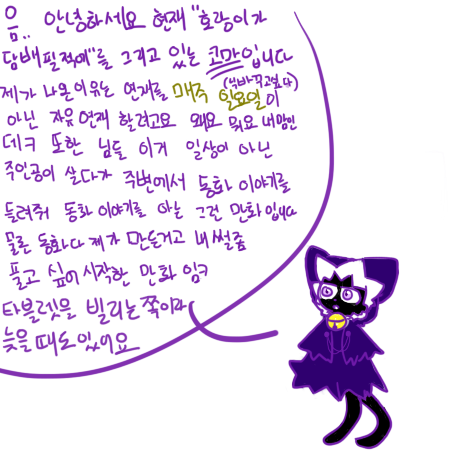 음.. 안녕하세요 현재 "호랑이가
담배필적에"를 그리고 있는 코마입니다
(닉바꾸고왔다)
제가 나온이유는 연재를 매주 일요일이
아닌 자유연재 할려고요 왜요 뭐요 내맘인
데ㅋ 또한 님들 이거 일상이 아닌
주인공이 살다가 주변에서 동화 이야기를
들려줘 동화 이야기를 아는 그런 만화입니다
물론 동화다 제가 만든거고 내 썰좀
풀고 싶어 시작한 만화 임ㅋ
타블렛을 빌리는쪽이라
늦을때도있어요